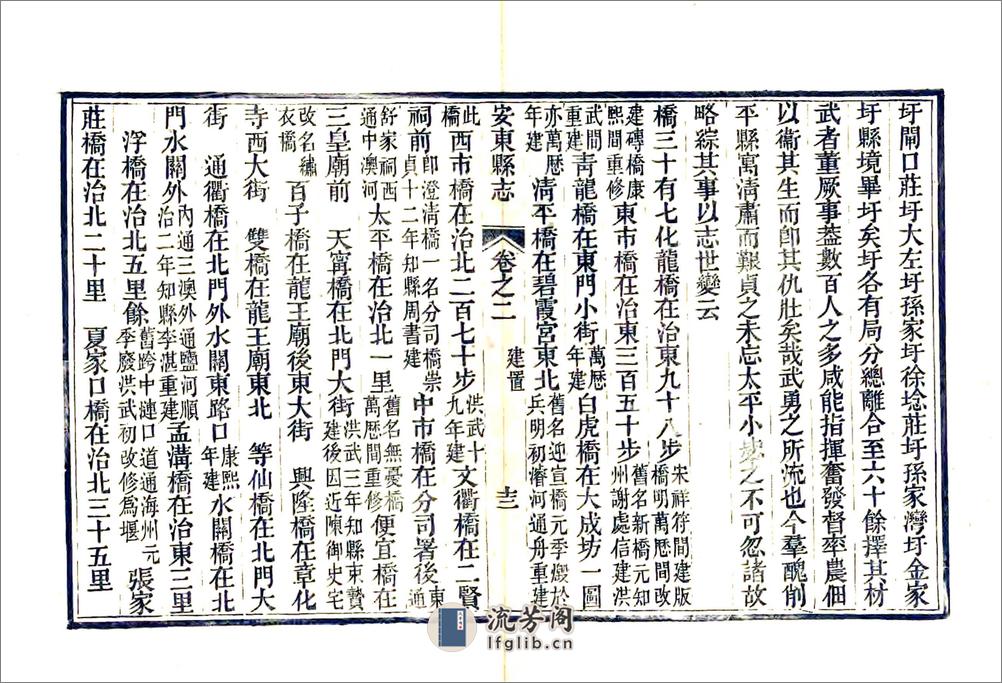 圩閘口莊圩大左圩孫家圩徐埝莊圩孫家灣圩金家
圩縣境畢圩矣圩各有局分總離合至六十餘擇其材
武者董厥事葢數百人之多咸能指揮奮發督率農佃
以衞其生而卽其仇壯矣哉武勇之所流也今羣醜削
平縣寓清肅而艱貞之未忘太平小之不可忽諸故
略綜其事以志世變云
橋三十有七化龍橋在治東九十八步宋祥符間建版橋明萬歷間改
建磚橋康熙間重修東市橋在治東三百五十步舊名新橋元知州謝處信建洪
武間重建靑龍橋在東門小街萬歷年建白虎橋在大成坊一圖
亦萬歷年建淸平橋在碧霞宮東北舊名迎宣橋元季燬於兵明初濬河通舟重建
安東縣志 卷之二 建置 十三
此橋西市橋在治北二百七十步洪武十九年建文衢橋在二賢
祠前卽澄清橋一名分司橋崇貞十二年知縣周書建中市橋在分司署後東
舒家祠西通中澳河太平橋在治北一里舊名無憂橋萬歷間重修便宜橋在
三皇廟前 天甯橋在北門大街洪武三年知縣東贊建後因近陳御史宅
改名繡衣橋 百子橋在龍王廟後東大街 興隆橋在章化
寺西大街 雙橋在龍王廟東北 等仙橋在北門大
街 通衢橋在北門外水關東路口康熙年建水關橋在北
門水關外內通三澳外通鹽河順治二年知縣李湛重建孟溝橋在治東三里
浮橋在治北五里餘舊跨中漣口道通海州元季廢洪武初改修爲堰 張家
莊橋在治北二十里 夏家口橋在治北三十五里
流芳阁
lfglib.cn